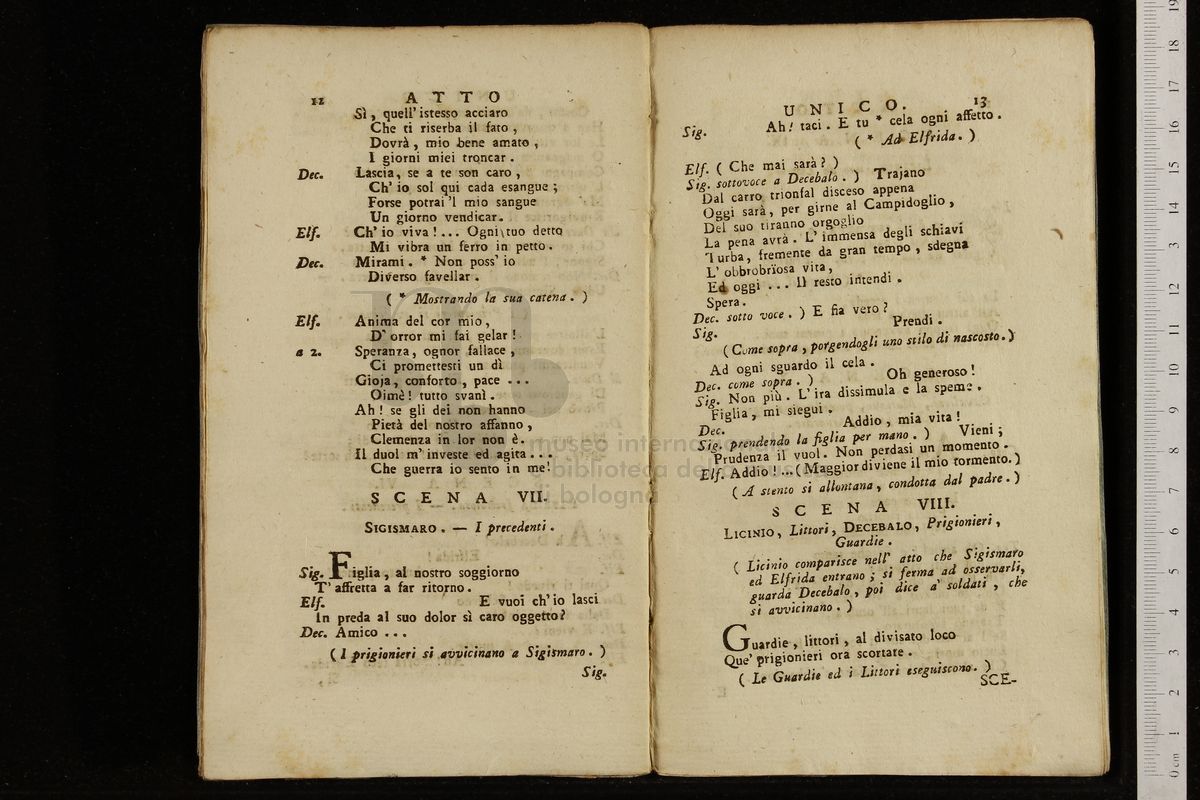 12 ATTO
Sì, quell' istesso acciaro
Che ti riserba il fato,
Dovrà, mio bene amato,
I giorni miei troncar.
Dec. Lascia, se a te son caro,
Ch' io sol qui cada esangue;
Forse potrai 'l mio sangue
Un giorno vendicar.
Elf. Ch' io viva!... Ogni tuo detto
Mi vibra un ferro in petto.
Dec. Mirami. * Non poss' io
Diverso favellar.
( * Mostrando la sua catena. )
Elf. Anima del cor mio,
D' orror mi fai gelar!
a 2. Speranza, ognor fallace,
Ci promettesti un dì
Gioja, conforto, pace ...
Oimè! tutto svanì.
Ah! se gli dei non hanno
Pietà del nostro affanno,
Clemenza in lor non è.
Il duol m' investe ed agita ...
Che guerra io sento in me!
SCENA VII.
SIGISMARO. — I precedenti.
Sig. Figlia, al nostro soggiorno
T' affretta a far ritorno.
Elf. E vuoi ch' io lasci
In preda al suo dolor sì caro oggetto?
Dec. Amico ...
( I prigionieri si avvicinano a Sigismaro. )
Sig.
UNICO. 13
Sig. Ah! taci. E tu * cela ogni affetto.
( * Ad Elfrida. )
Elf. ( Che mai sarà? )
Sig. sottovoce a Decebalo. ) Trajano
Dal carro trionfal disceso appena
Oggi sarà, per girne al Campidoglio,
Del suo tiranno orgoglio
La pena avrà. L' immensa degli schiavi
Turba, fremente da gran tempo, sdegna
L' obbrobrïosa vita,
Ed oggi ... Il resto intendi.
Spera.
Dec. sotto voce. ) E fia vero?
Sig. Prendi.
(Come sopra, porgendogli uno stilo di nascosto.)
Ad ogni sguardo il cela.
Dec. come sopra. ) Oh generoso!
Sig. Non più. L' ira dissimula e la speme.
Figlia, mi siegui.
Dec. Addio, mia vita!
Sig. prendendo la figlia per mano. ) Vieni;
Prudenza il vuol. Non perdasi un momento.
Elf. Addio!...(Maggior diviene il mio tormento.)
(A stento si allontana, condotta dal padre.)
SCENA VIII.
LICINIO, Littori, DECEBALO, Prigionieri,
Guardie.
( Licinio comparisce nell' atto che Sigismaro
ed Elfrida entrano; si ferma ad osservarli,
guarda Decebalo, poi dice a' soldati, che
si avvicinano. )
Guardie, littori, al divisato loco
Que' prigionieri ora scortate.
( Le Guardie ed i Littori eseguiscono. )
SCE-